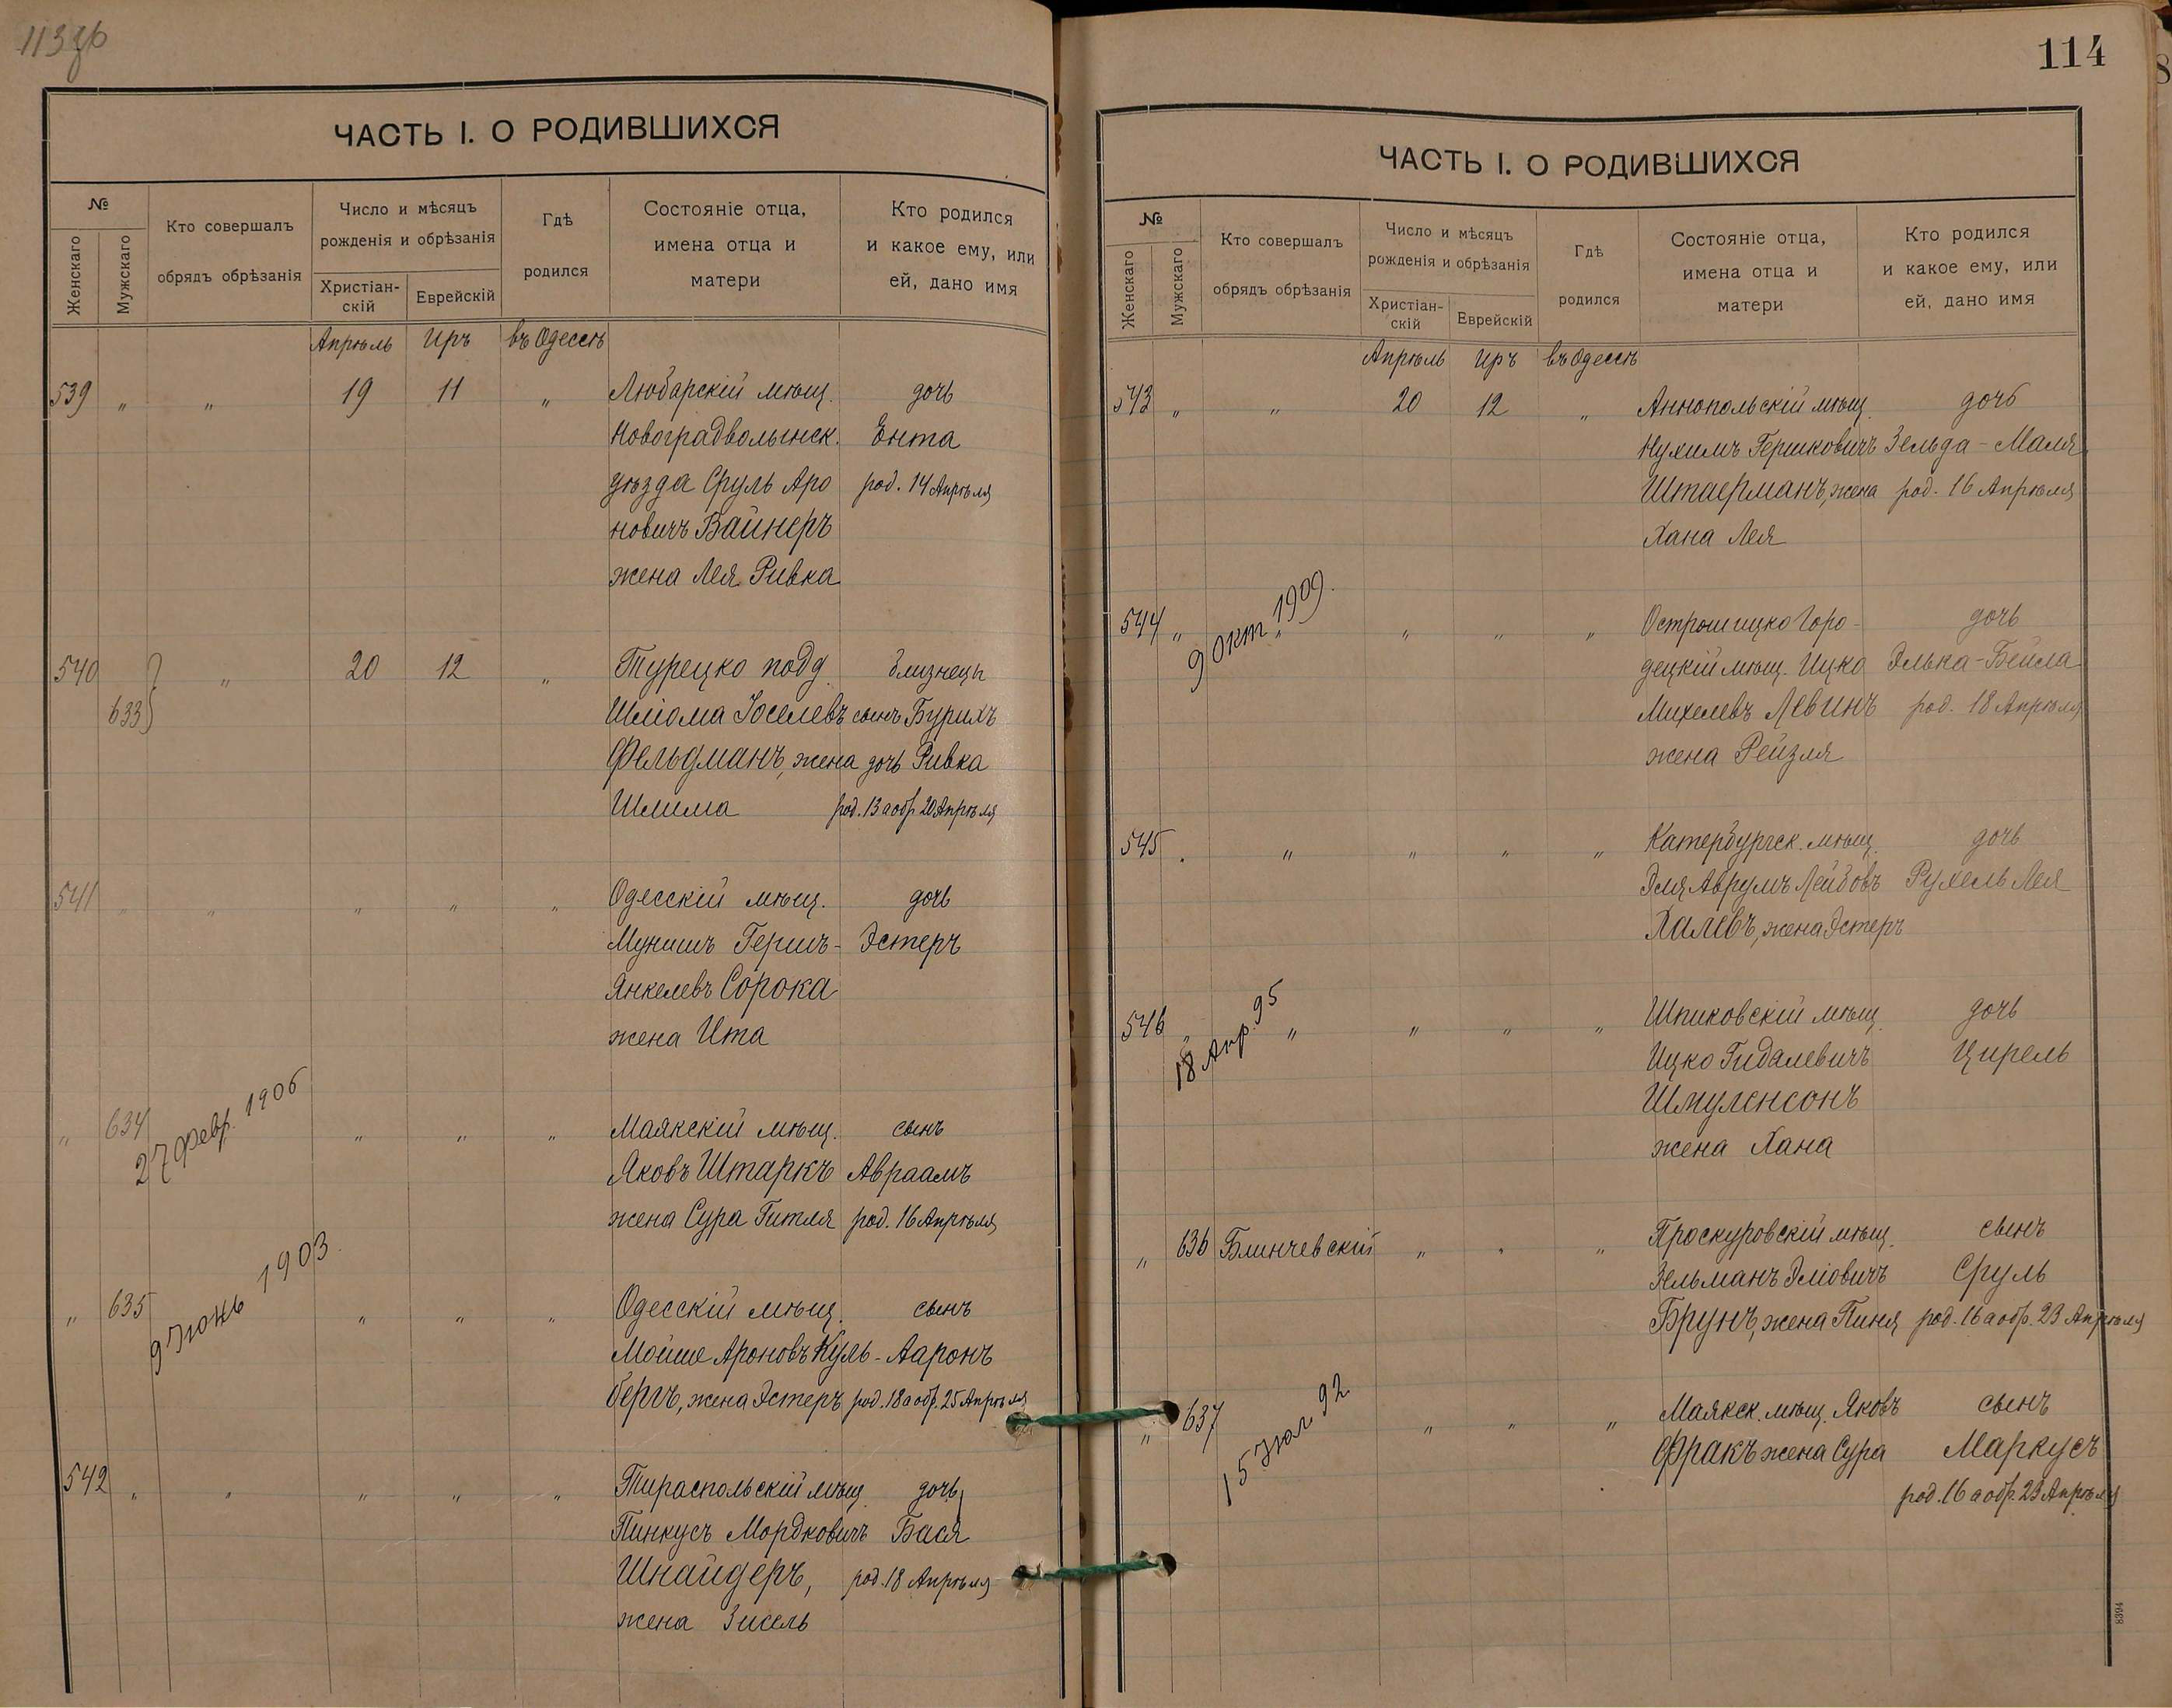 113 зб
ЧАСТЬ I. О РОДИВШИХСЯ
№
Женскаго
Мужскаго
Кто совершалъ
обрядъ обрѣзанія
Число и мѣсяцъ
рожденія и обрѣзанія
Христіан-
скій
Еврейскій
Гдѣ
родился
Состояніе отца,
имена отца и
матери
Кто родился
и какое ему, или
ей, дано имя
Апрѣль Иръ въ Одессѣ
539 „ „ 19 11 „ Любарскій мѣщ. дочь
Новоградволынск. Ента
уѣзда Сруль Аро род. 14 Апрѣля
новичъ Вайнеръ
жена Лея Ривка
540 „ 20 12 „ Турецко подд. близнецы
633 Шліома Іоселевъ сынъ Бурихъ
Фельдманъ, жена дочь Ривка
Шлима род. 13 а обр 20 Апрѣля
541 „ „ „ „ „ Одесскій мѣщ. дочь
Мунишъ Гершъ- Эстеръ
Янкелевъ Сорока
жена Ита
„ 634 27 февр. 1906 „ „ „ Маякскій мѣщ. сынъ
Яковъ Штаркъ Авраамъ
жена Сура Гитля род. 16 Апрѣля
„ 635 9 Іюнь 1903. „ „ „ Одесскій мѣщ. сынъ
Мойше Ароновъ Куль- Ааронъ
бергъ, жена Эстеръ род. 18 а обр. 25 Апрѣля
542 „ „ „ „ „ Тираспольскій мѣщ. дочь
Пинкусъ Мордковичъ Бася
Шнайдеръ, род. 18 Апрѣля
жена Зисель
114
ЧАСТЬ I. О РОДИВШИХСЯ
№
Женскаго
Мужскаго
Кто совершалъ
обрядъ обрѣзанія
Число и мѣсяцъ
рожденія и обрѣзанія
Христіан-
скій
Еврейскій
Гдѣ
родился
Состояніе отца,
имена отца и
матери
Кто родился
и какое ему, или
ей, дано имя
Апрѣль Иръ въ Одессѣ
543 „ „ 20 12 „ Аннопольскій мѣщ. дочь
Нухимъ Гершковичъ Зельда-Маля
Штаерманъ, жена род. 16 Апрѣля
Хана Лея
544 „ 9 окт 1909. „ „ „ „ Острошицко Горо- дочь
децкій мѣщ. Ицко Элька-Бейла
Михелевъ Левинъ род. 18 Апрѣля
жена Рейзля
545 „ „ „ „ „ Катербургск. мѣщ. дочь
Эля Аврумъ Лейбовъ Рухель Лея
Халевъ, жена Эстеръ
546 „ 18 Апр. 95 „ „ „ „ Шпиковскій мѣщ. дочь
Ицко Гидалевичъ Цирель
Шмуленсонъ
жена Хана
„ 636 Блинчевскій „ „ „ Проскуровскій мѣщ. сынъ
Зельманъ Эліовичъ Сруль
Брунъ, жена Пиня род. 16 а обр. 23 Апрѣля
„ 637 15 Іюл 92 „ „ „ Маякск. мѣщ. Яковъ сынъ
Фракъ жена Сура Маркусъ
род. 16 а обр. 23 Апрѣля
8394